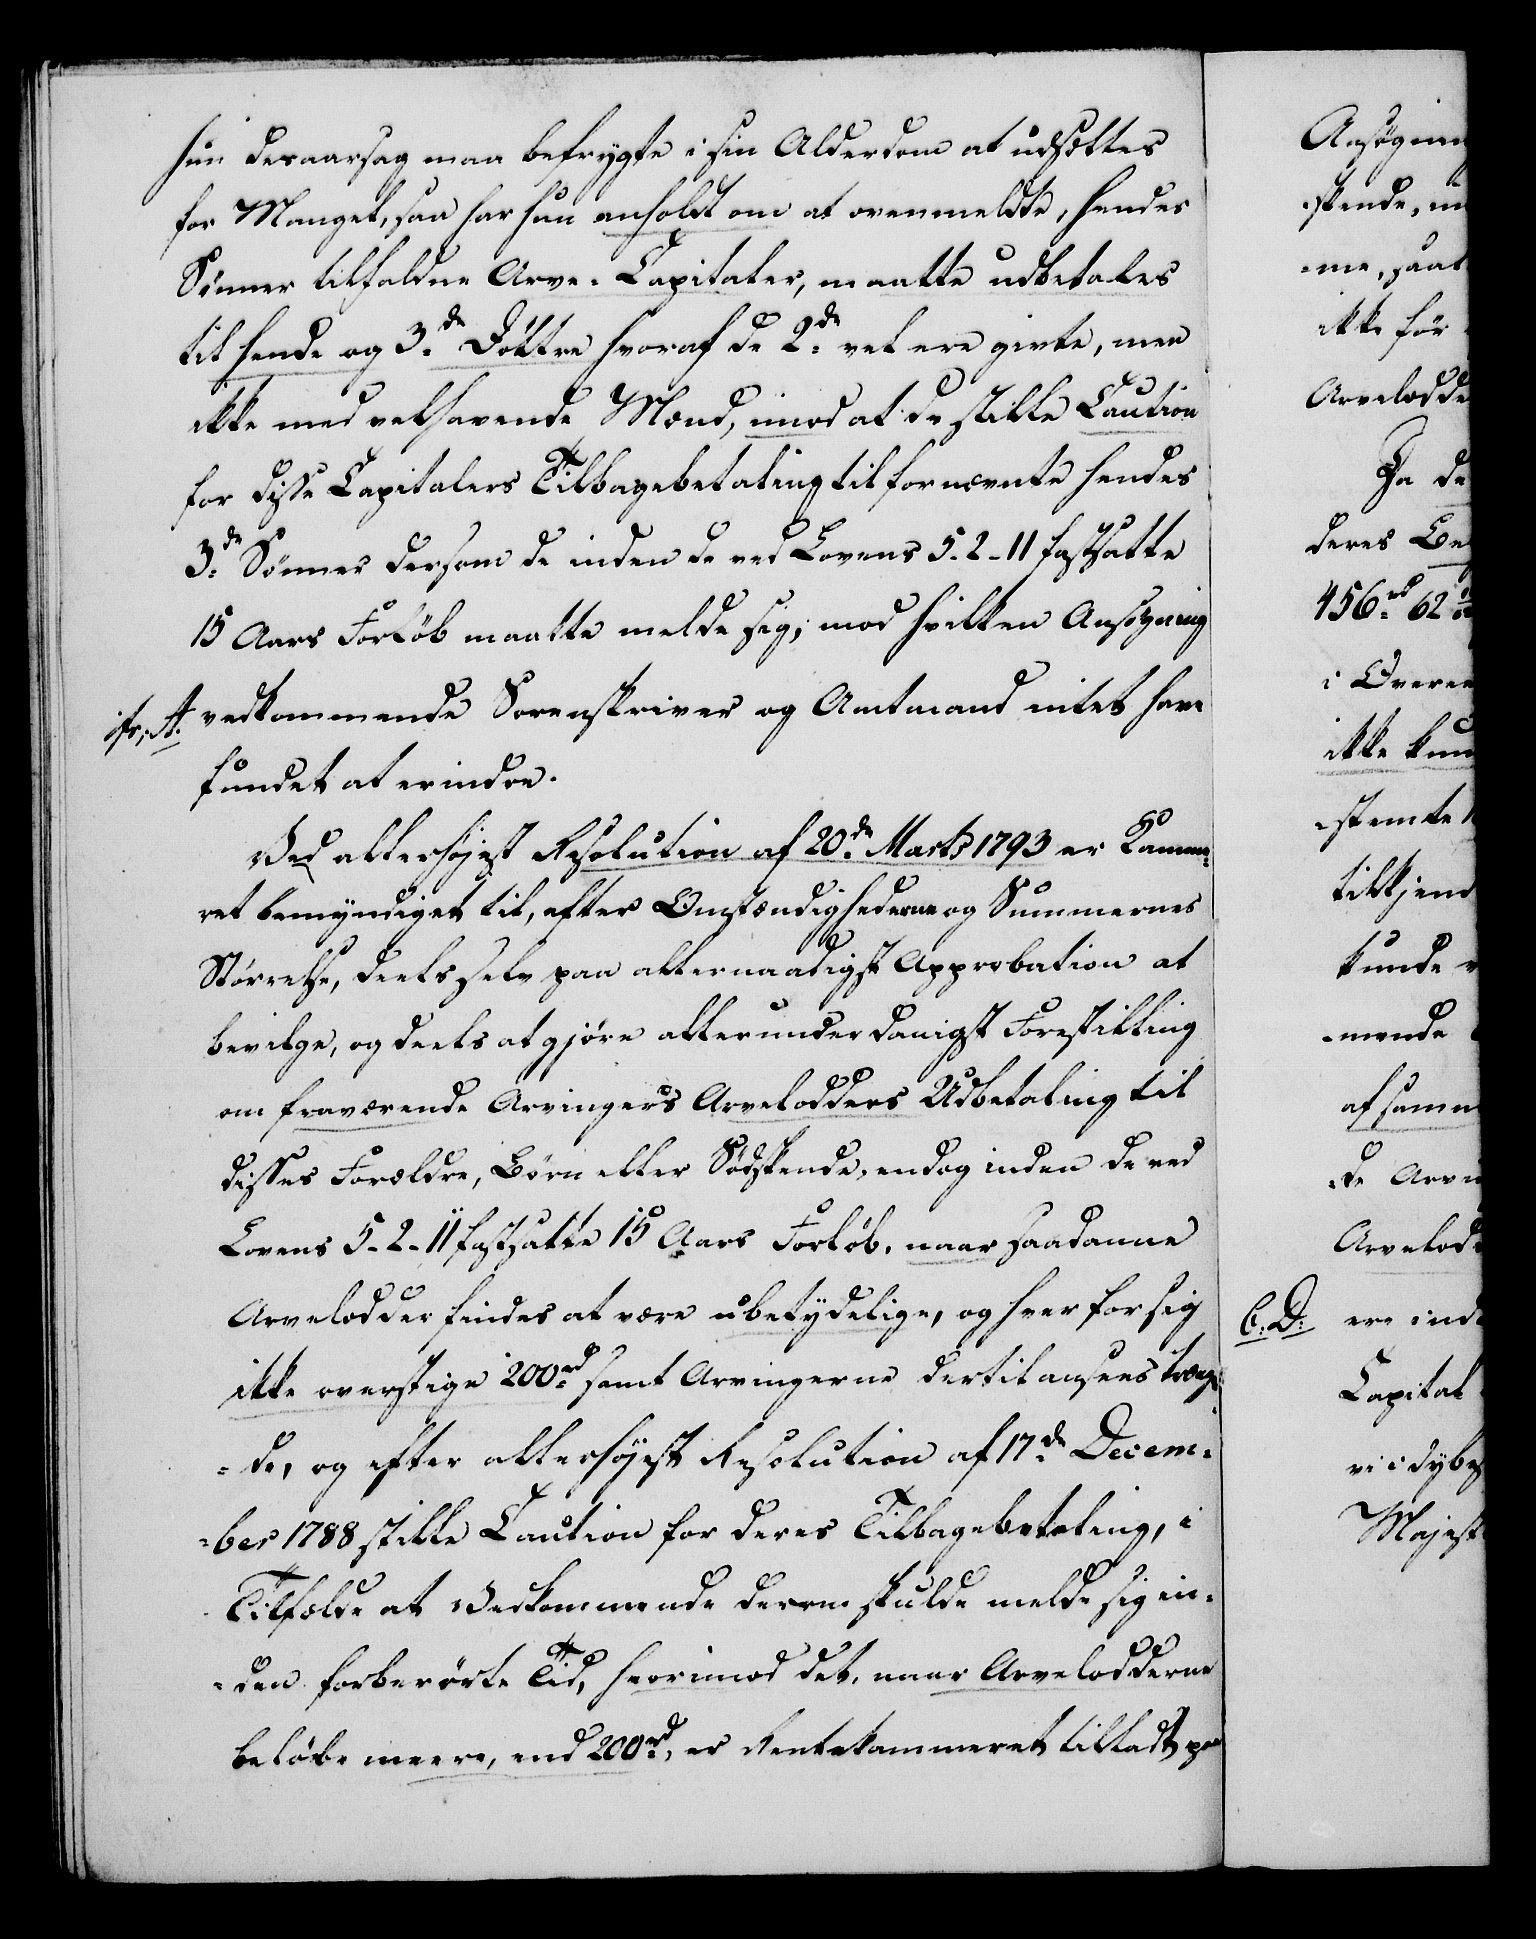 hun desaarsag maa befrygte i sin Alderdom at udsættes
for Mangel, saa har hun anholdt om at ovenmeldte, hendes
Sønner tilfaldne Arve-Capitaler, maatte udbetales
til hende og 3de Døttre hvoraf de 2de vel ere givte, men
ikke med velhavende Mænd, imod at de stille Caution
for disse Capitalers Tilbagebetaling til fornævnte hendes
3de Sønner dersom de inden de ved Lovens 5-2-11 fastsatte
15 Aars Forløb maatte melde sig; mod hvilken Ansøgning
vedkommende Sorenskriver og Amtmand intet have
fundet at erindre.
Ved allerhøjest Resolution af 20de Marts 1793 er Kamme-
ret bemyndiget til, efter Omstændighederne og Summernes
Størrelse, deels selv paa allernaadigst Approbation at
bevilge, og deels at gjøre allerunderdanigst Forestilling
om fraværende Arvingers Arvelodders Udbetaling til
disses Forældre, Børn eller Sødskende, endog inden de ved
Lovens 5-2-11 fastsatte 15 Aars Forløb, naar saadanne
Arvelodder findes at være ubetydelige, og hver for sig
ikke overstige 200rd samt Arvingerne dertil ansees træng-
-de, og efter allerhøjest Resolution af 17de Decem-
-ber 1788 stille Caution for deres Tilbagebetaling, i
Tilfælde at Vedkommende derom skulde melde sig in-
-den forberørte Tid, hvorimod det, naar Arvelodderne
beløbe meere, end 200rd, er Rentekammeret tilladt paa
Ansøgnin
-skende, in
-me, saal
ikke før
Arvelodde
Da de
deres Be
456rd 62
i Overee
ikke kun
-stemte
tilkjend
kunde
-mende
af samm
-de Arvi
Arvelod
b. D: ere ind
Capital
vi i dybes
Majest